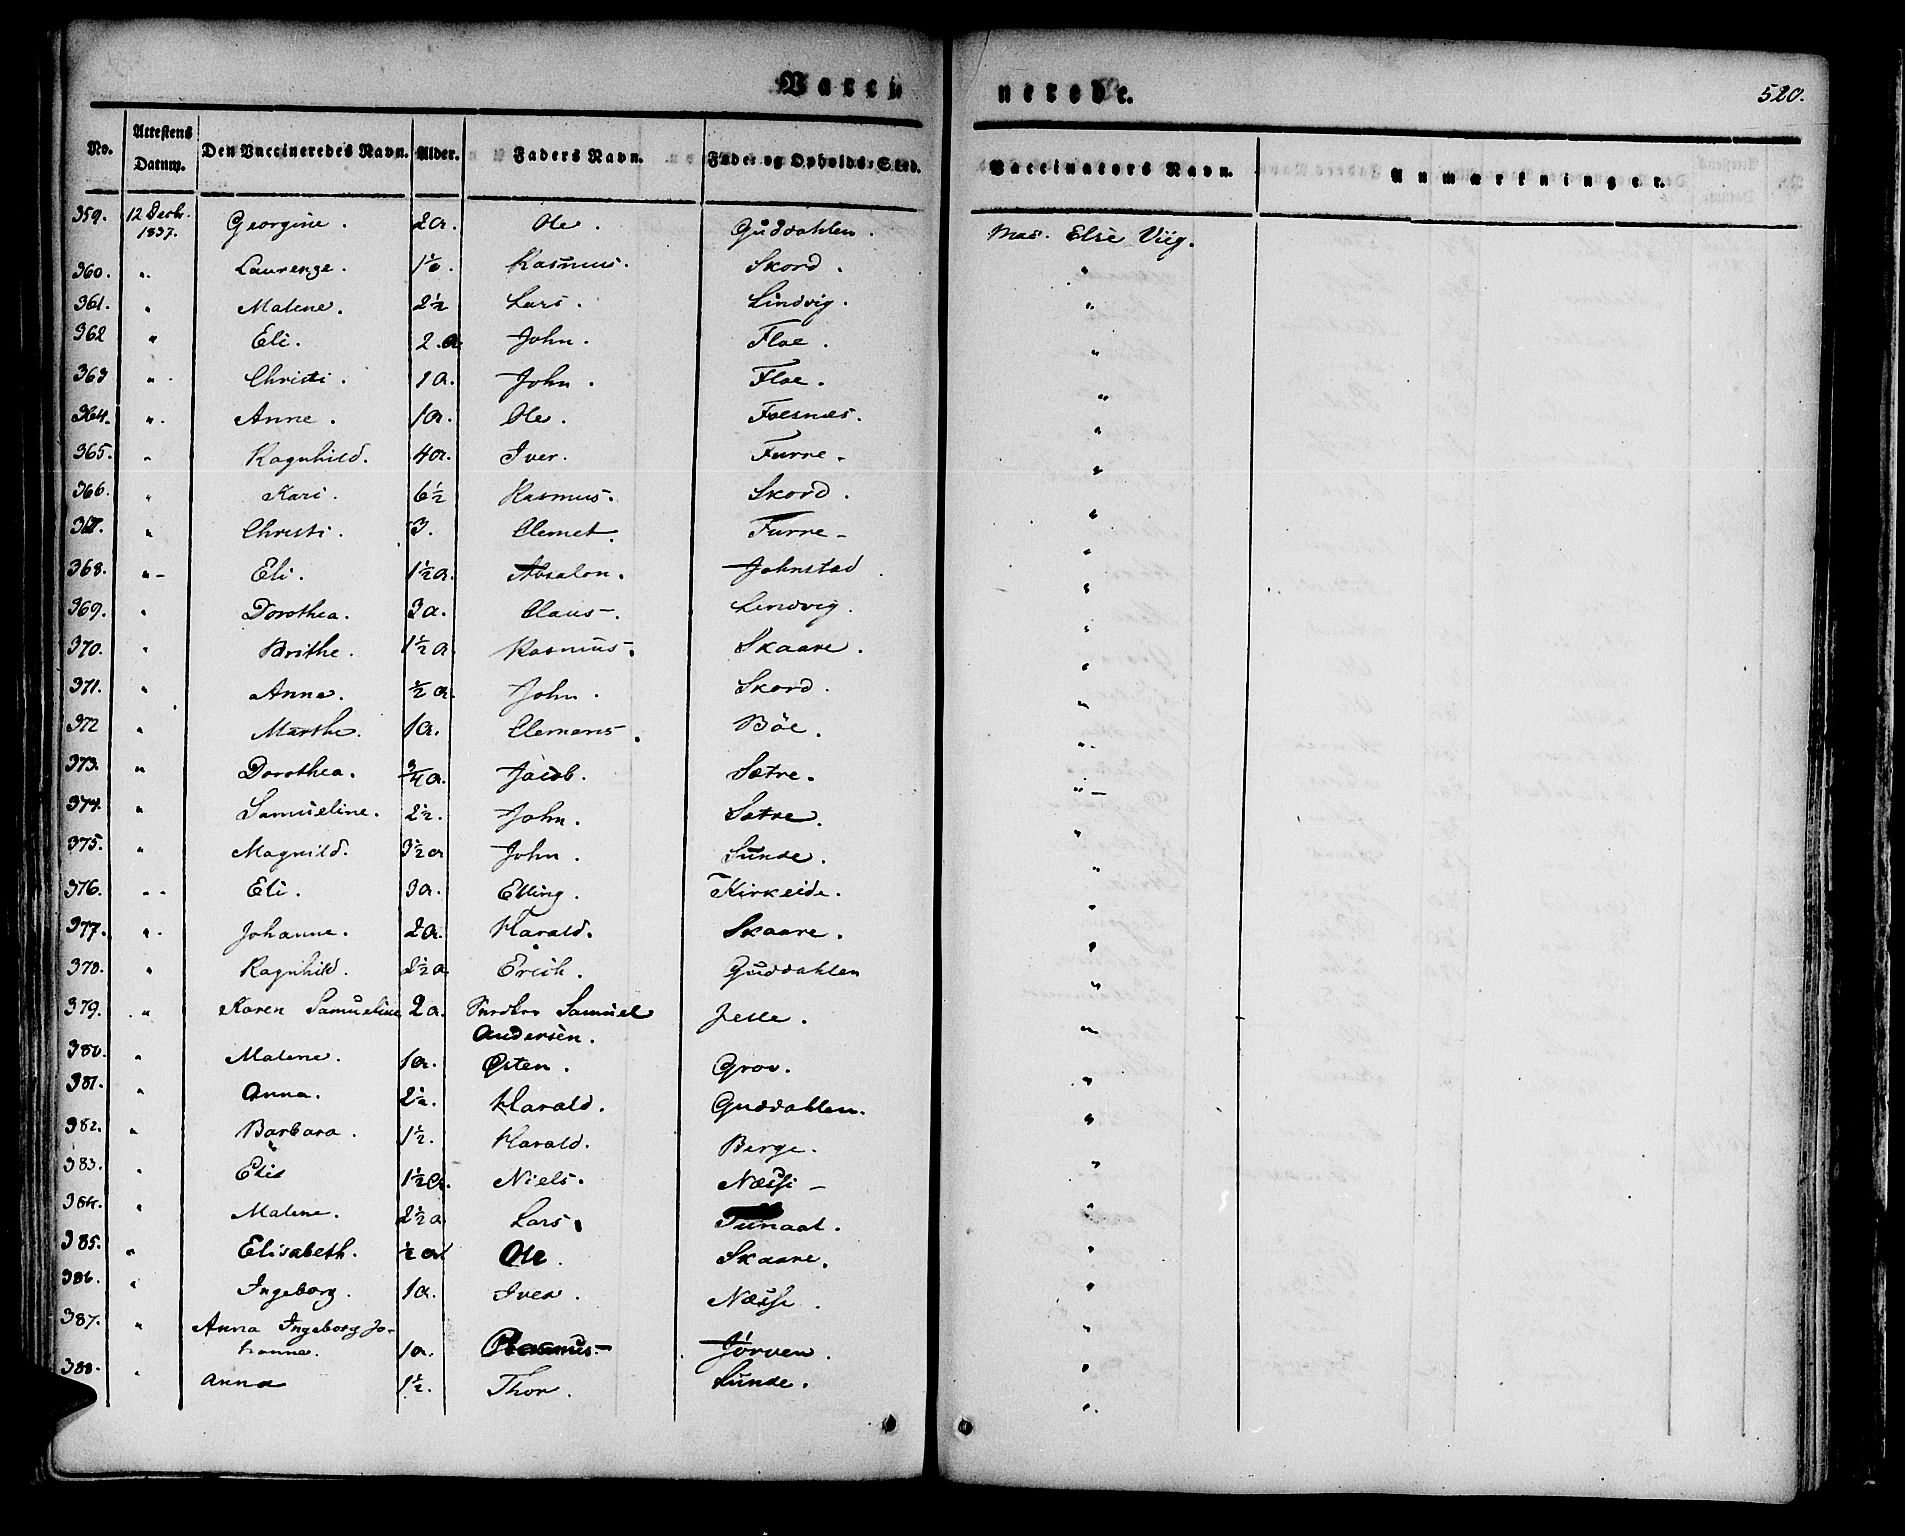 Vacci nerede. 520.
No. Attestens Datum. Den Vaccineredes Navn. Alder. Faders Navn. Føde- og Opholds-Sted. Vaccinators Navn. Anmærkninger.
359. 12 Decbr. 1837. Georgine. 2 a. Ole. Guddahlen. Mad. Else Viig.
360. " Laurenze. 1½. Rasmus. Skord. "
361. " Malene. 2½ Lars. Lindvig. "
362 " Eli. 2. a John. Floe. "
363 " Christi. 1 a. John. Floe. "
364. " Anne. 1 a. Ole. Foesnæs. "
365. " Ragnhild. 4 a. Iver. Furre. "
366. " Kari. 6½ Rasmus. Skord. "
367. " Christi. 3. Clemet. Furre "
368. " Eli. 1½ a. Absalon. Johnstad. "
369. " Dorothea. 3 a. Claus. Lindvig. "
370. " Brithe. 1½ a. Rasmus. Skaare. "
371. " Anna. ½ a. John. Skord. "
372 " Marthe. 1 a. Clemens. Böe. "
373. " Dorothea. ¾ a. Jacob. Sætre. "
374. " Samueline. 2½. John. Sætre. "
375. " Magnild. 3½ a John. Sunde. "
376. " Eli. 3 a. Elling. Kirkeide. "
377. " Johanne. 2 a. Harald. Skaare. "
378. " Ragnhild. 2½ a Erich. Guddahlen "
379. " Karen Samueline 2 a. Samuel Jelle. "
Andersen.
380. " Malene. 1 a. Østen. Grov. "
381. " Anna. 2½. Harald. Guddahlen. "
382. " Barbara. 1½. Harald. Berge. "
383. " Elis 1½ a. Niels. Næsse "
384. " Malene. 2½ a Lars. "
385. " Elisabeth. ½ a Ole. Skaare. "
386. " Ingeborg. 1 a. Iver. Næsse. "
387. " Anna Ingeborg Jo-
hanne. 1 a. Rasmus. Jørven. "
388. " Anna 1½. Thor. Sunde. "